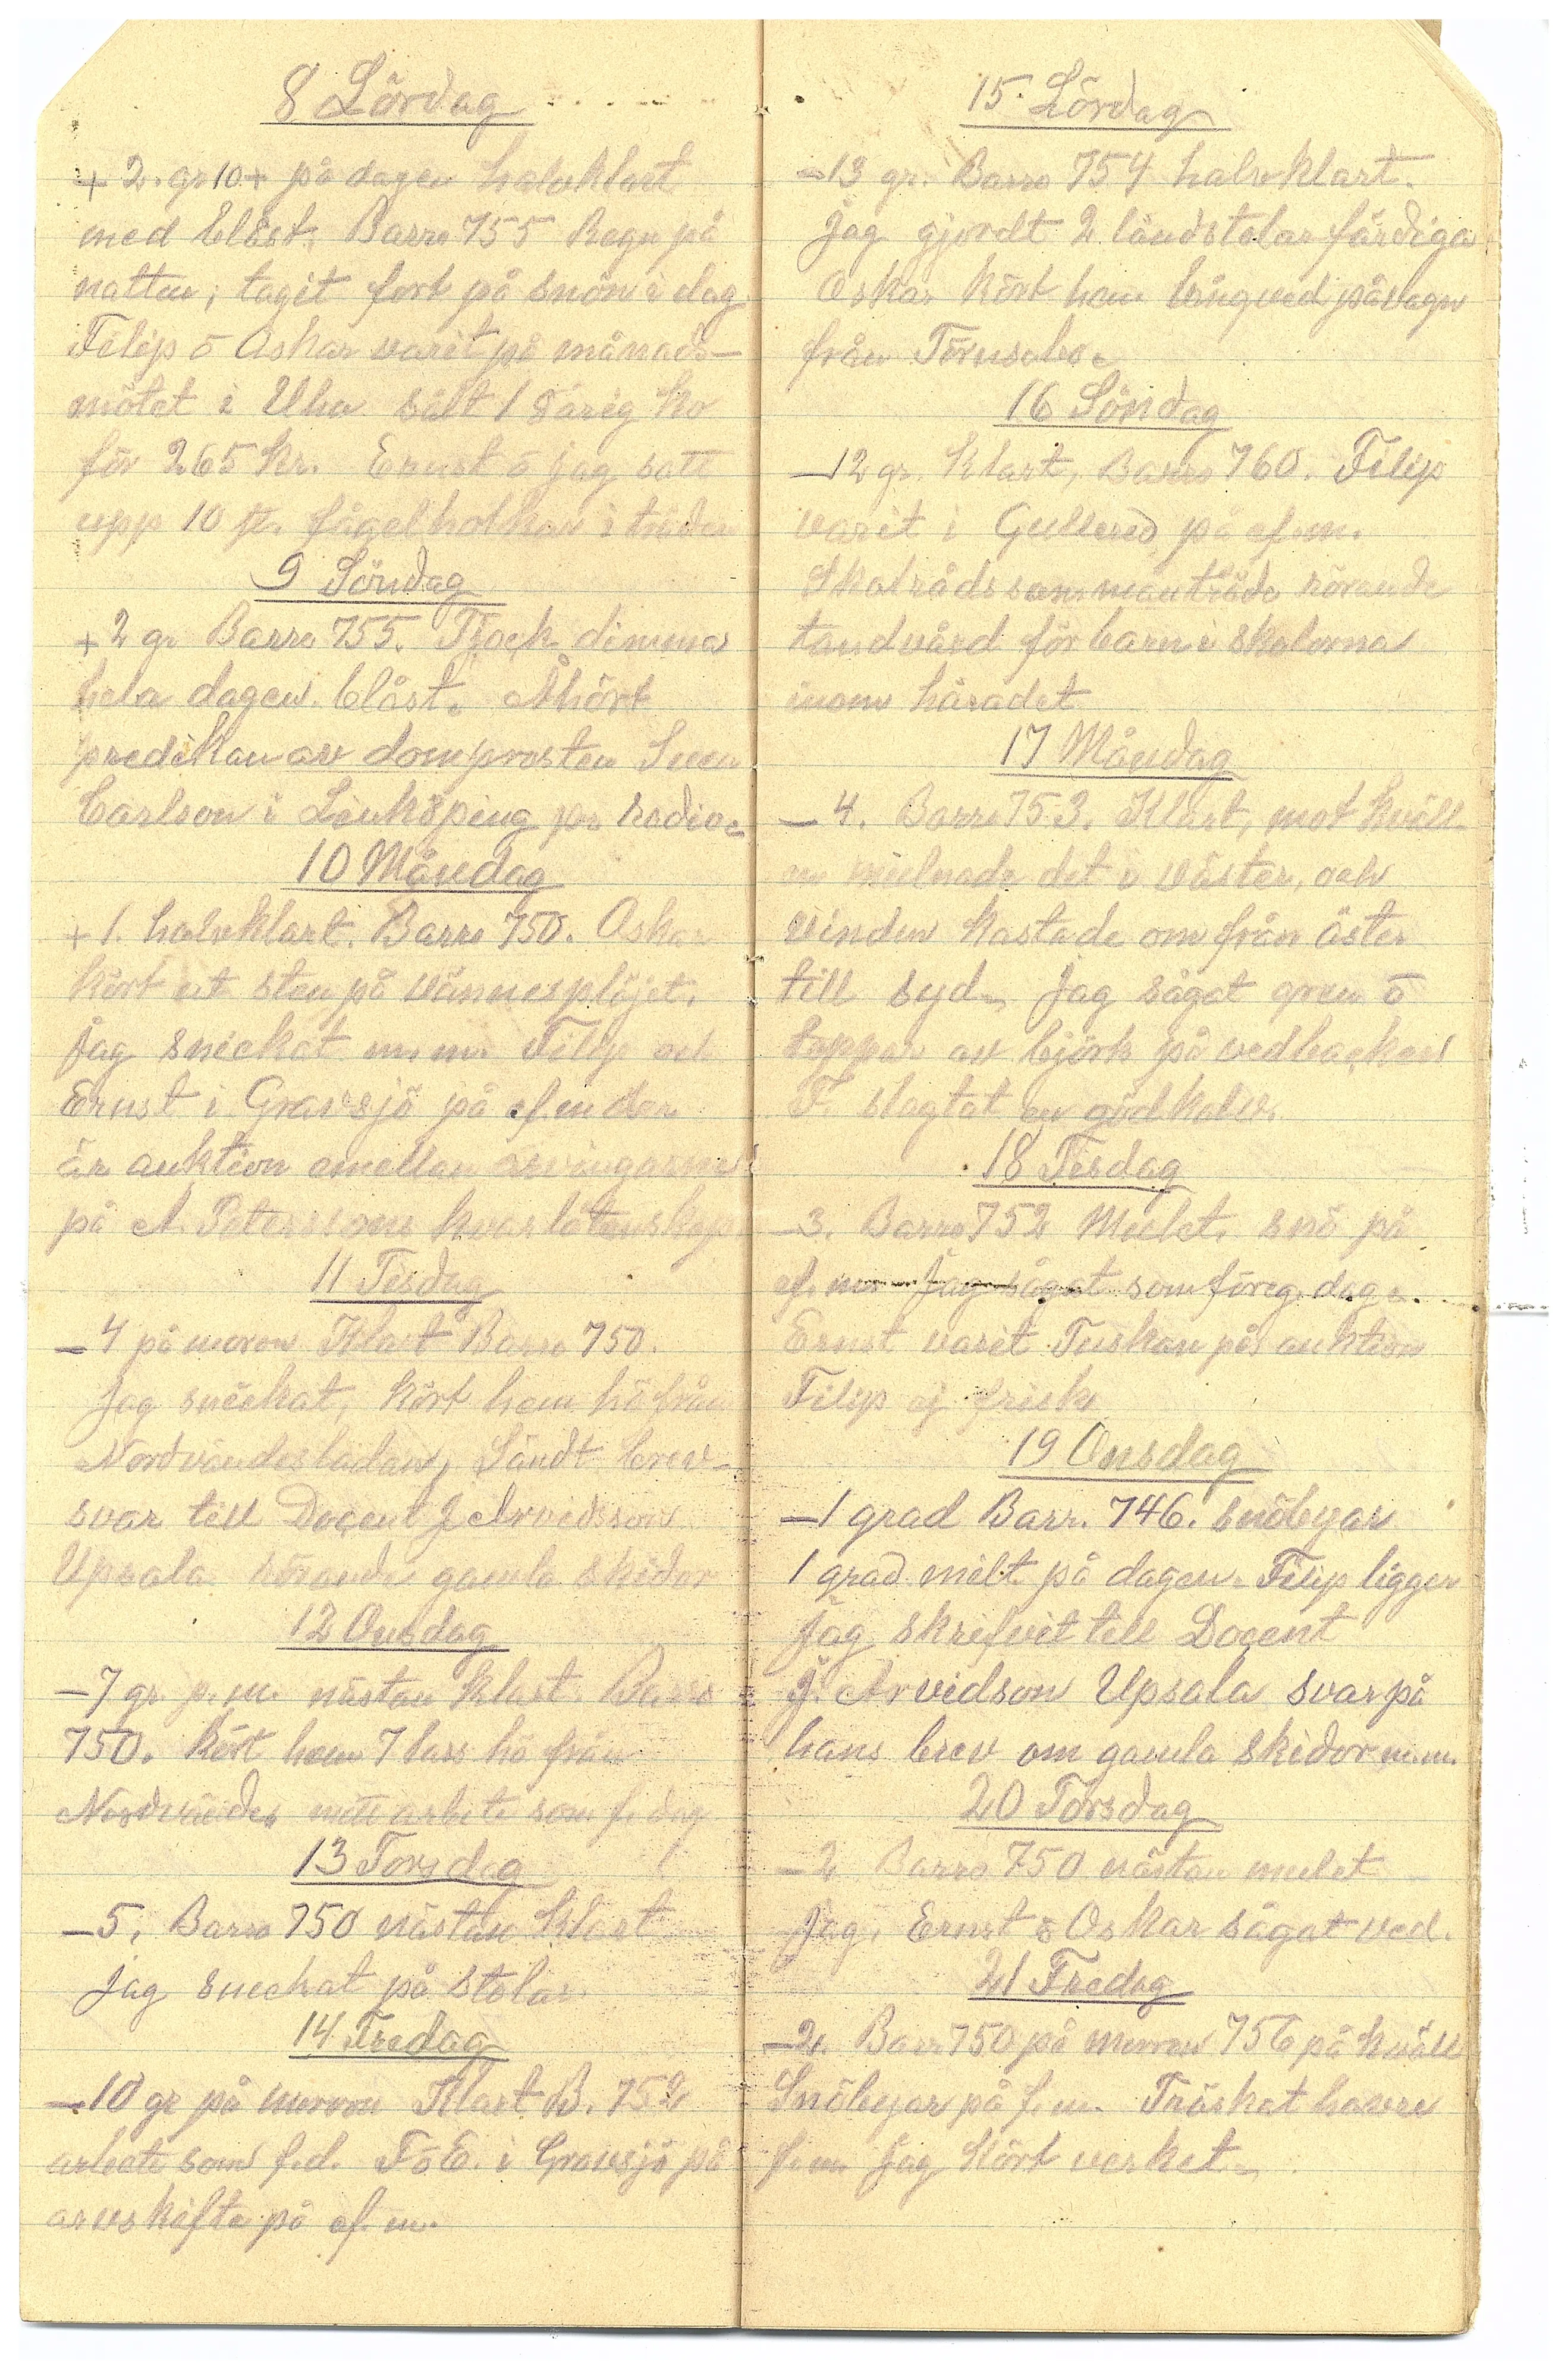 8 Lördag
+ 2. gr 10+ på dagen halvklart
med blåst. Barro 755 Regn på
natten; tagit fort på snön i dag
Filip o Oskar varit på månads-
mötet i Uha sålt 1 8årig ko
för 265 kr. Ernst o jag satt
upp 10 st. fågelholkar i träden
9 Söndag
+2 gr Barro 755. Tjock dimma
hela dagen. blåst. Åhört
predikan av domprosten Sven
Carlson i Linköping pr radio.
10 Måndag
+ 1. halvklart. Barro 750. Oskar
kört ut sten på vännesplöjet.
Jag snickat m.m. Filip och
Ernst i Gravsjö på ef.m der
är auktion emellan arvingarne
på A. Peterssons kvarlåtenskap
11 Tisdag
- 4 på moron Klart Barro 750.
Jag snickat, kört hem hö från
Nordvändesladan, Sändt brev-
svar till Docent J Arvedsson
Upsala rörande gamla skidor
12 Onsdag
- 7 gr p.m. nästan klart. Barro
750. Kört hem 7 lass hö från
Nordvändes mitt arbete som f. dag
13 Torsdag
- 5. Barro 750 nästan klart
Jag snickat på stolar.
14 Fredag
- 10 gr på morron Klart B. 752
arbete som f.d. F o E. i Gravsjö på
arvskifte på ef. m.
15 Lördag
- 13 gr. Barro 754 halvklart.
Jag gjordt 2 ländstolar färdiga
Oskar kört hem långved på vagn
från Törnsabo.
16 Söndag
- 12 gr. Klart, Barro 760. Filip
varit i Gullered på ef.m.
Skolrådssammanträde rörande
tandvård för barn i skolorna
inom häradet
17 Måndag
- 4. Barro 753. Klart, mot kväll-
en mulnade det i väster, och
vinden kastade om från öster
till syd. Jag sågat gren o
toppar av björk på vedbacken
F. slagtat en gödkalv.
18 Tisdag
- 3. Barro 752 Mulet. snö på
ef. m. Jag sågat som föreg. dag.
Ernst varit Tuskan på auktion
Filip ej frisk
19 Onsdag
- 1 grad Barr. 746. snöbyar
1 grad milt på dagen. Filip ligger
Jag skrifvit till Docent
J. Arvidson Upsala svar på
hans brev om gamla skidor m.m.
20 Torsdag
- 2 Barro 750 nästan mulet
Jag, Ernst o Oskar sågat ved.
21 Fredag
- 2. Barr 750 på morron 756 på kväll
Snöbyar på f.m. Tröskat havre
f.m Jag kört verket.